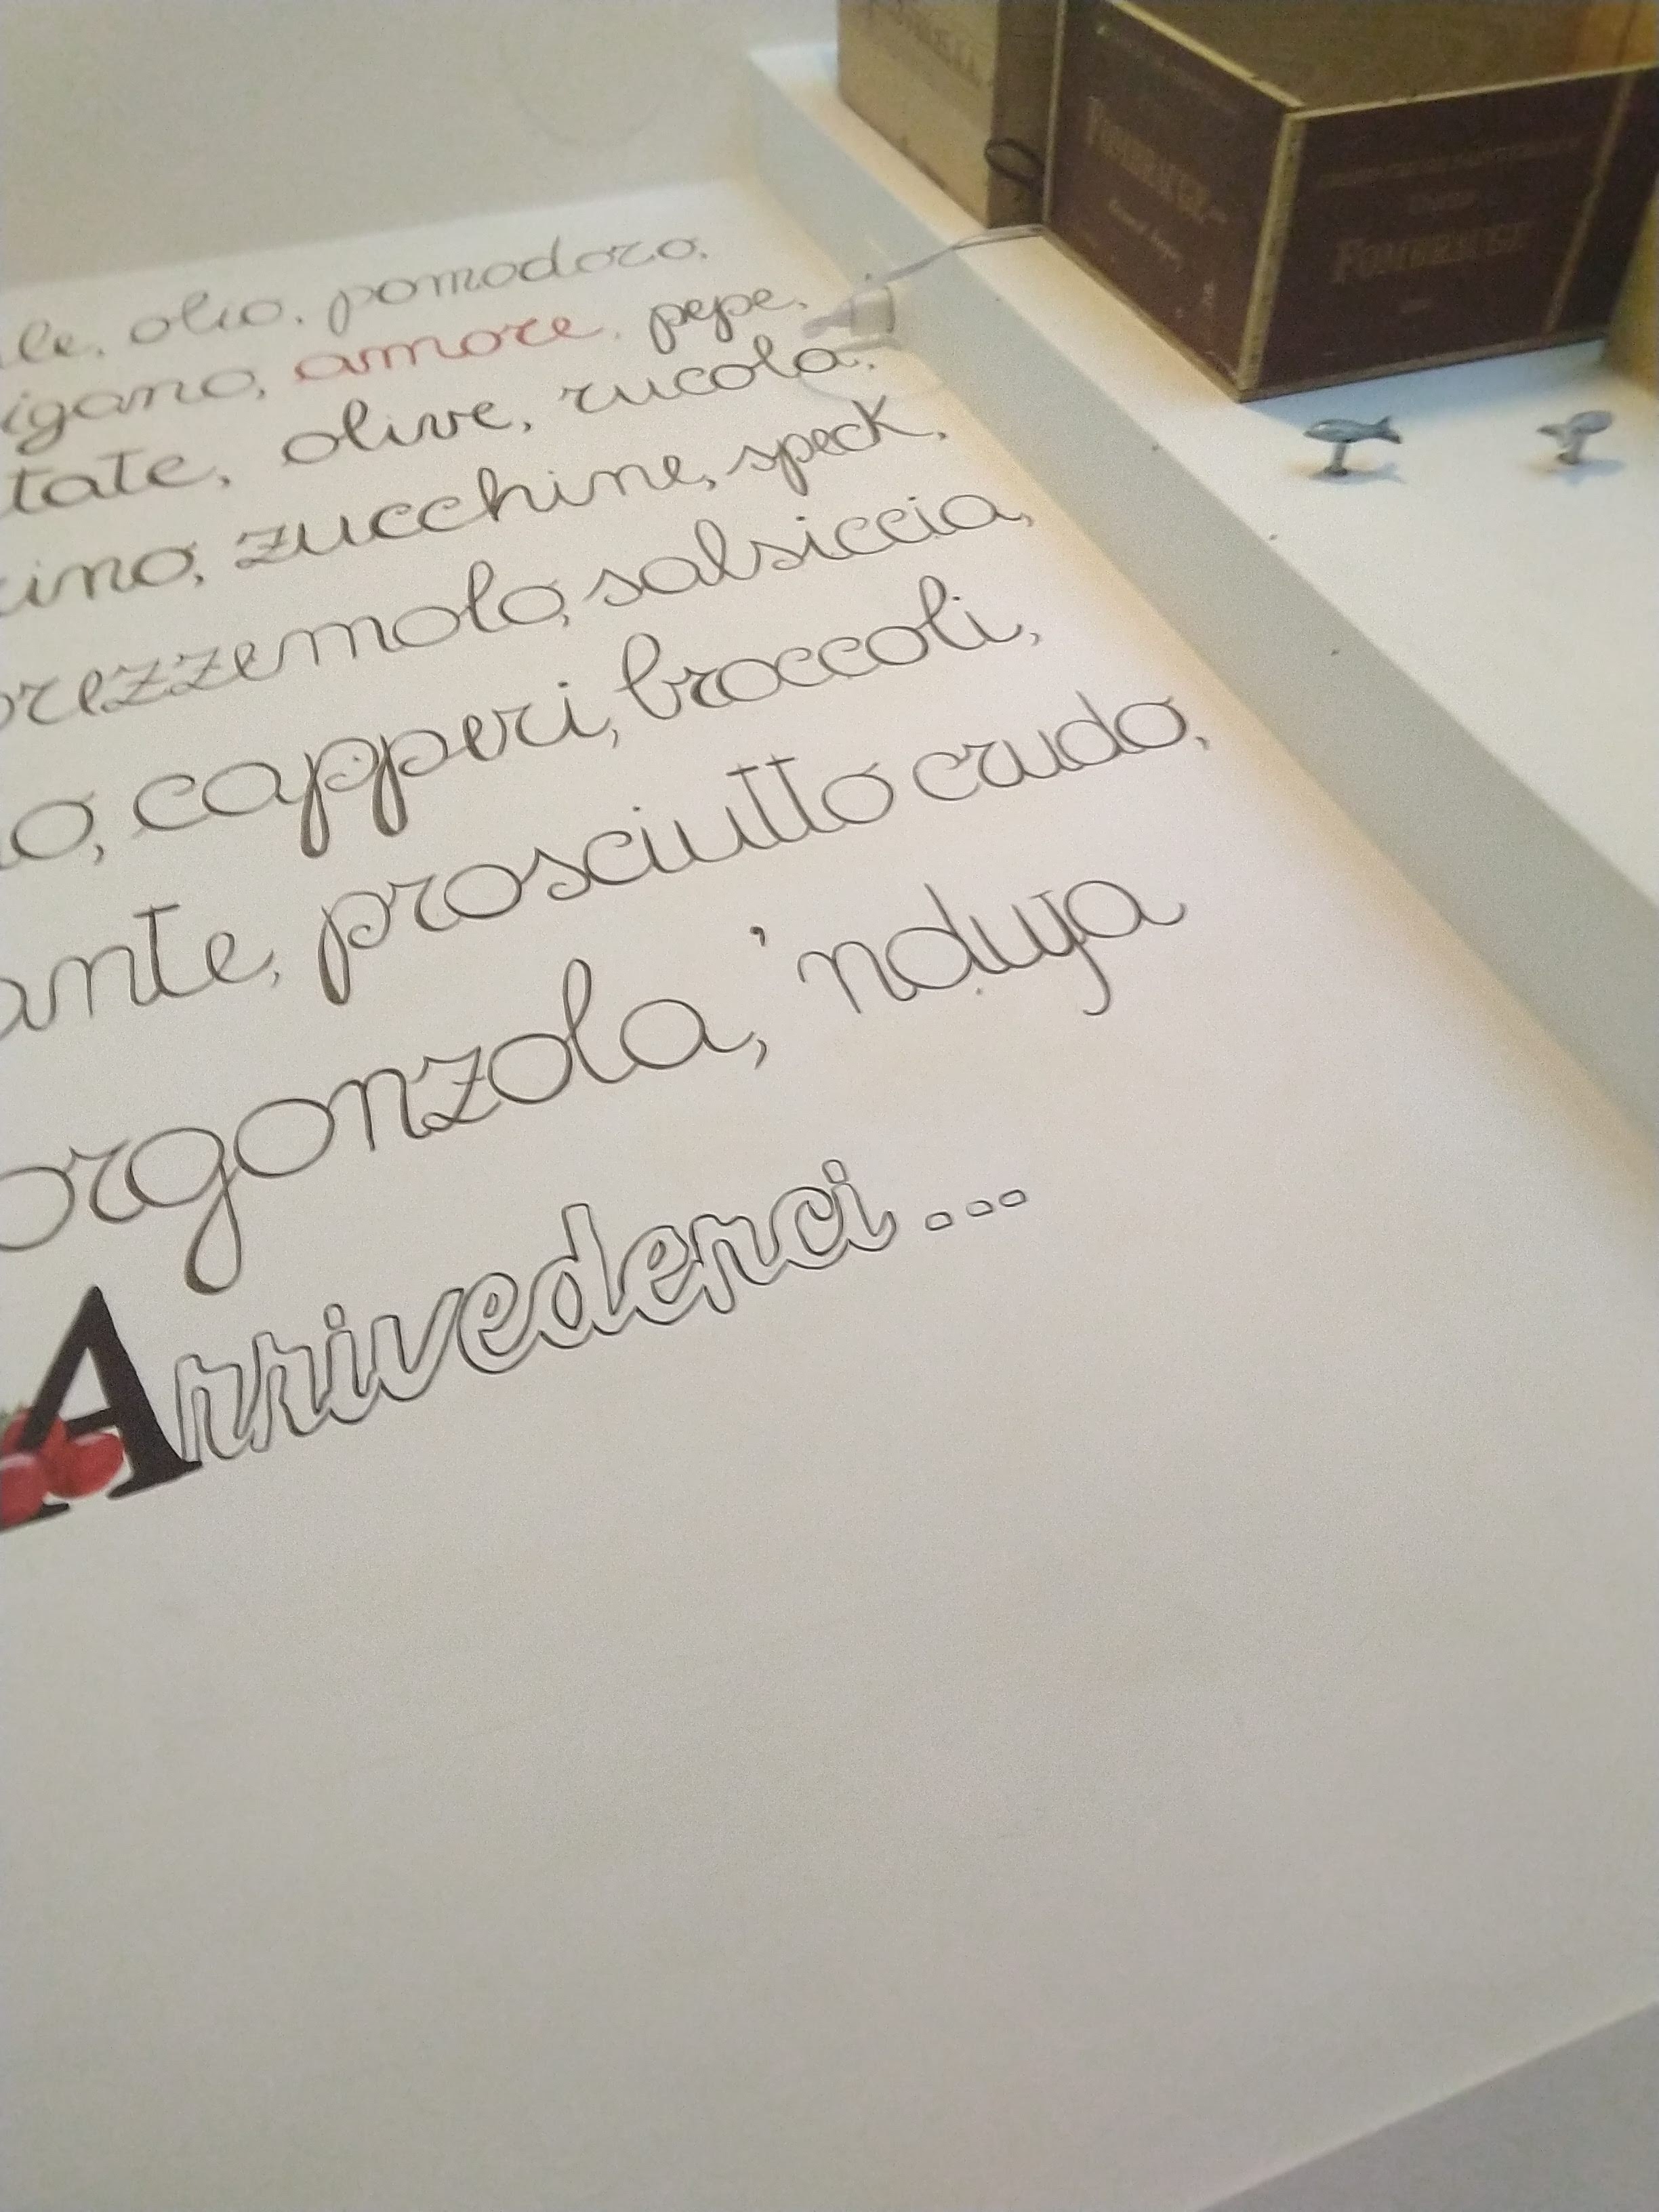 le, olio, pomodoro,
igano, amore, pepe,
tate, olive, rucola,
ino, zucchine, speck,
rezzemolo, salsiccia,
o, capperi, broccoli,
ante, prosciutto crudo,
orgonzola, 'nduja
Arrivederci...
FOMBRAUGE
FOMBRAUGE